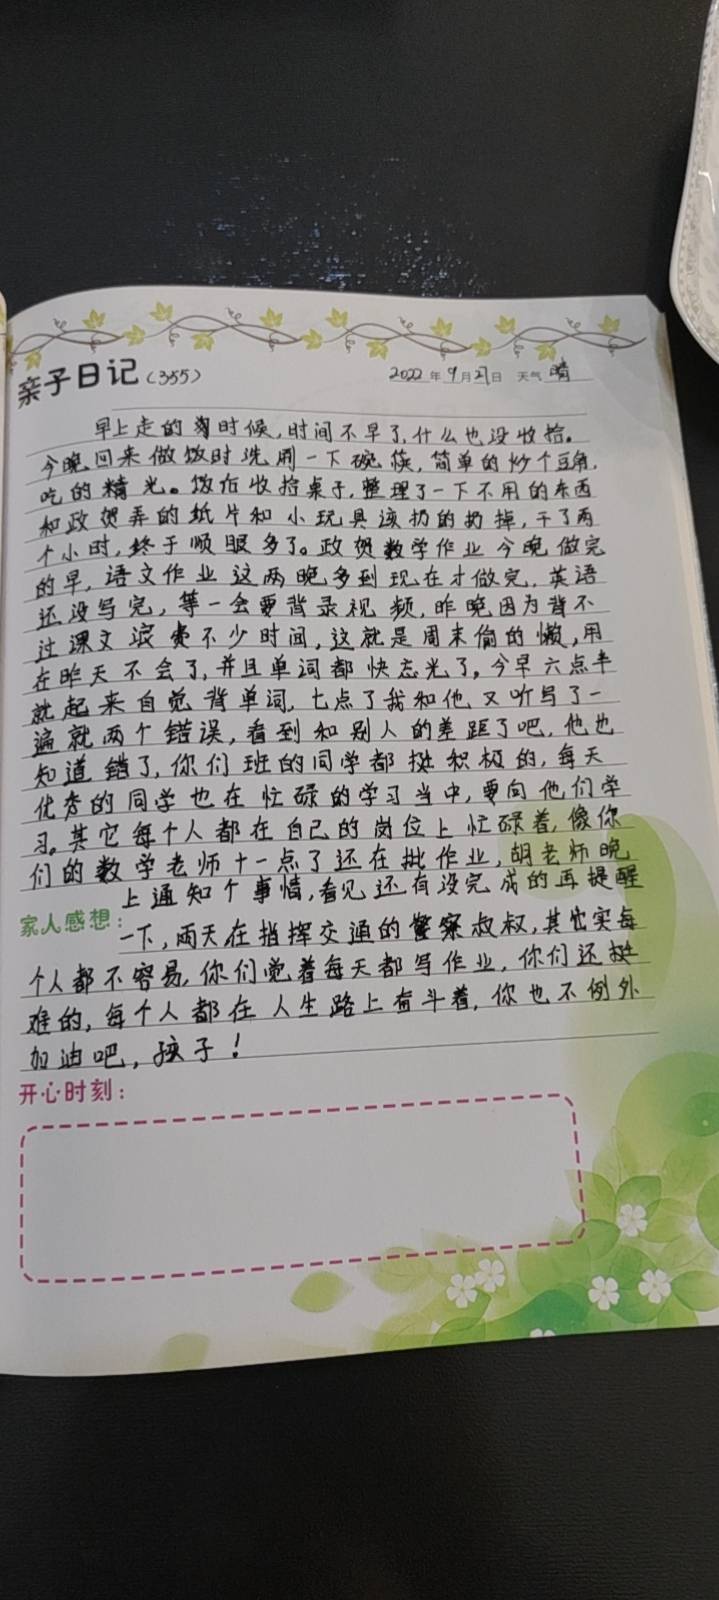 亲子日记(355) 2022年9月27日 天气 晴
早上走的时候,时间不早了,什么也没收拾。
今晚回来做饭时洗刷一下碗筷,简单的炒个豆角,
吃的精光。饭后收拾桌子,整理了一下不用的东西
和政贺弄的纸片和小玩具该扔的扔掉,干了两
个小时,终于顺眼多了。政贺数学作业今晚做完
的早,语文作业这两晚多到现在才做完,英语
还没写完,等一会要背录视频,昨晚因为背不
过课文浪费不少时间,这就是周末偷的懒,用
在昨天不会了,并且单词都快忘光了。今早六点半
就起来自觉背单词,七点了我和他又听写了一
遍就两个错误,看到和别人的差距了吧,他也
知道错了,你们班的同学都挺积极的,每天
优秀的同学也在忙碌的学习当中,要向他们学
习。其它每个人都在自己的岗位上忙碌着,像你
们的数学老师十一点了还在批作业,胡老师晚
上通知个事情,看见还有没完成的再提醒
家人感想:
一下,雨天在指挥交通的警察叔叔,其它实每
个人都不容易,你们觉着每天都写作业,你们还挺
难的,每个人都在人生路上奋斗着,你也不例外
加油吧,孩子!
开心时刻: